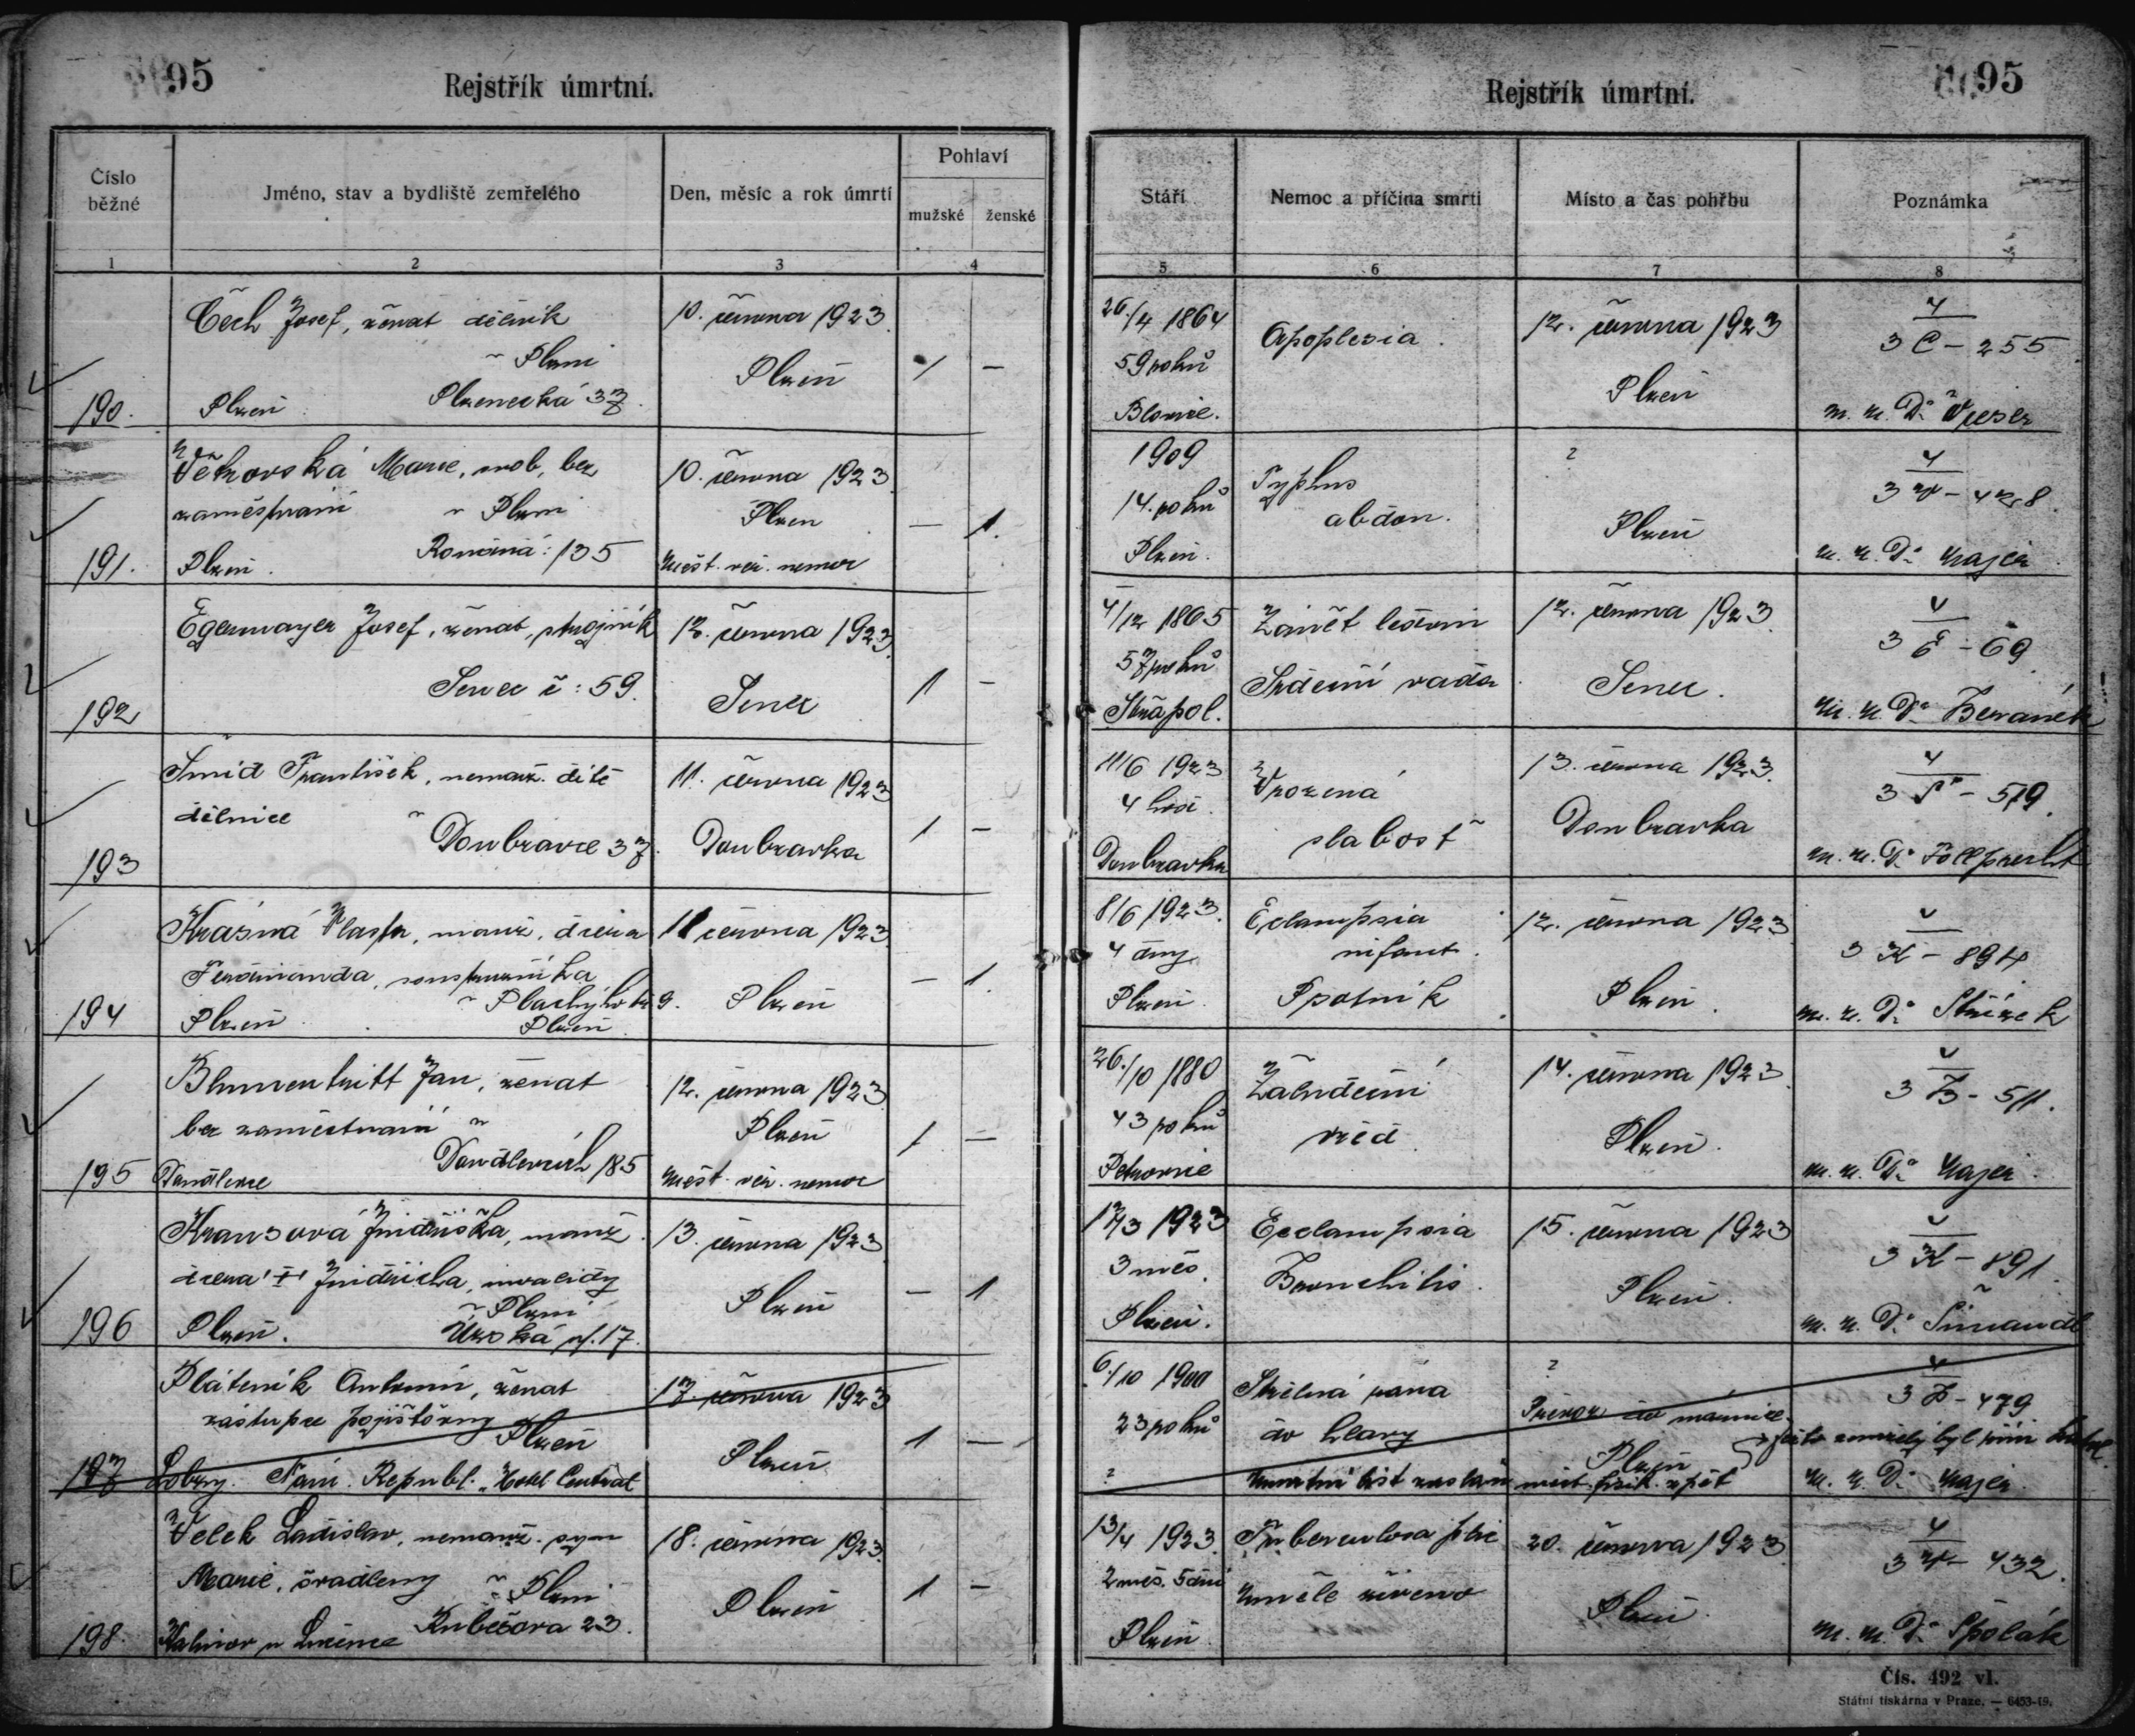 95
Rejstřík úmrtní.
Číslo běžné
Jméno, stav a bydliště zemřelého
Den, měsíc a rok úmrtí
Pohlaví
mužské
ženské
1
2
3
4
190.
Čech Josef, ženat dělník
v Plzni
Plzeň. Plzenecká 37.
10. června 1923.
Plzeň
1 —
191.
Větrovská Marie, svob, bez
zaměstnání v Plzni
Plzeň. 135
10. června 1923
Plzen
— 1.
192
Egermayer Josef, ženat, strojník
Senec č: 59.
12. června 1923.
Senec
1 —
193
Šmíd František, nemanž. dítě
dělnice v Doubravce 37.
11. června 1923
Doubravka
1 —
194
Krásná Vlasta, manž. dcera
Ferdinanda, soustružníka
v 9.
Plzeň. Plzeň
11 června 1923
Plzeň
— 1.
195
Blumentritt Jan, ženat
bez zaměstnání v
185
12. června 1923
Plzeň
1 —
196
Krausová Jindřiška, manž.
dcera Jindřicha, invalidy
v Plzni
Plzeň. Úzká ul. 17.
13. června 1923
Plzeň
— 1
197
Pláteník Antonín, ženat
zástupce pojišťovny
Plzeň
Lobzy. Nám. Republ. „Hotel Central
17. června 1923
Plzeň
1 —
198.
Velek Ladislav, nemanž. syn
Marie, švadleny v Plzni
23.
18. června 1923.
Plzeň
1 —
95
Rejstřík úmrtní.
Stáří
Nemoc a příčina smrti
Místo a čas pohřbu
Poznámka
5
6
7
8
26./4 1864
59 roků
Blovice.
Apoplexia.
12. června 1923
Plzeň
3 C – 255
m. u. Dr.
1909
14. roků
Plzeň.
Typhus
abdom.
?
Plzeň
m. u. Dr. Majer
4/12 1865
57 roků
Zánět ledvin
Srdeční vada
12. června 1923.
Senec.
3 E – 69
m. u. Dr. Beránek
11/6 1923
4 hod.
Doubravka
Vrozená
slabosť
13. června 1923.
Doubravka
3 Š – 519.
m. u. Dr.
8/6 1923.
4 dny
Plzeň.
Eclampsia
infant.
Psotník
12. června 1923
Plzeň.
3 K – 894
m. u. Dr.
26./10 1880
43 roků
Žaludeční
vřed
14. června 1923.
Plzeň.
3 B – 511.
m. u. Dr. Majer.
1923
3 měs.
Plzeň.
Ecclampsia
Bronchitis.
15. června 1923
Plzeň.
3 K – 891.
m. u. Dr. Šimandl
6./10 1900
23 roků
?
Střelná rána
do hlavy
?
Převoz do márnice
Plzeň
3 P – 479
m. u. Dr. Majer.
13/4 1923.
2 měs. 5 dní
Plzeň
Tuberculosa plic
uměle živeno
20. června 1923
Plzeň.
432.
m. u. Dr. Špolák
Čís. 492 vl.
Státní tiskárna v Praze. — 6453-19.